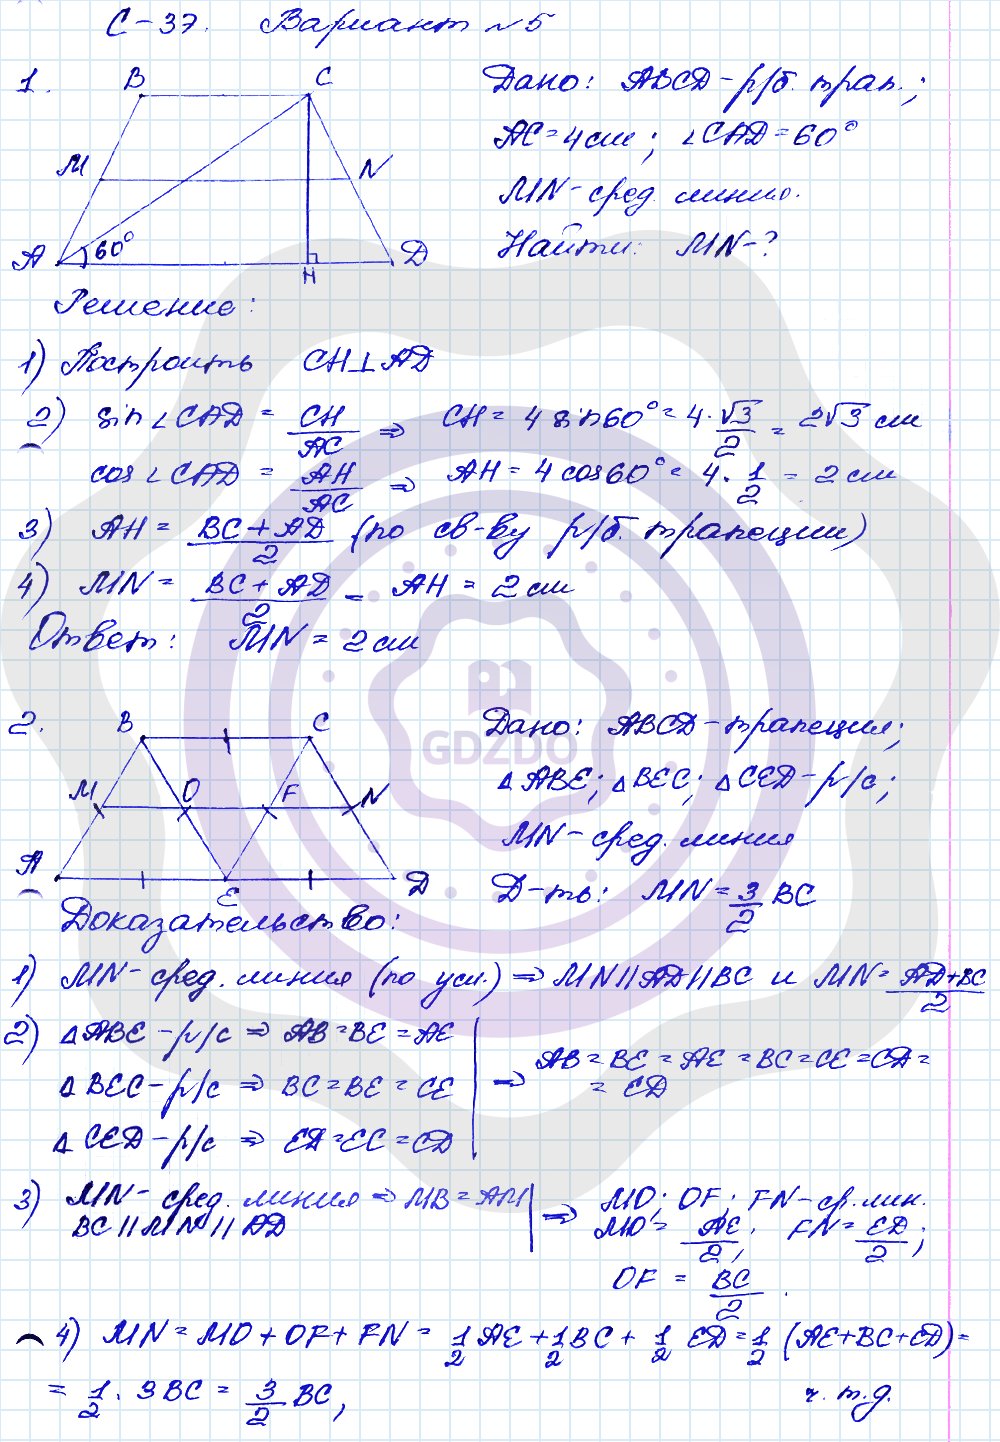 С-37. Вариант №5
1.
B C
M N
A 60° H D
Дано: ABCD-р/б. трап.;
AC=4см; ∠CAD=60°
MN-сред. линия.
Найти: MN-?
Решение:
1) Построить CH⊥AD
2) sin∠CAD = CH/AC ⇒ CH = 4 sin60° = 4·√3/2 = 2√3 см
cos∠CAD = AH/AC ⇒ AH = 4 cos60° = 4·1/2 = 2 см
3) AH = (BC+AD)/2 (по св-ву р/б. трапеции)
4) MN = (BC+AD)/2 = AH = 2 см
Ответ: MN = 2 см
2.
B C
M O F N
A E D
Дано: ABCD-трапеция;
△ABE; △BEC; △CED-р/с;
MN-сред. линия
Д-ть: MN=3/2 BC
GDZDO
Доказательство:
1) MN-сред. линия (по усл.) ⇒ MN||AD||BC и MN=(AD+BC)/2
2) △ABE-р/с ⇒ AB=BE=AE
△BEC-р/с ⇒ BC=BE=CE
△CED-р/с ⇒ ED=EC=CD
⇒ AB=BE=AE=BC=CE=CD=
=ED
3) MN-сред. линия ⇒ MB=AM
BC||MN||AD
⇒ MO; OF; FN-ср. лин.
MO=AE/2; FN=ED/2;
OF=BC/2.
4) MN=MO+OF+FN=1/2 AE+1/2 BC+1/2 ED=1/2 (AE+BC+ED)=
=1/2·3BC=3/2 BC, ч.т.д.